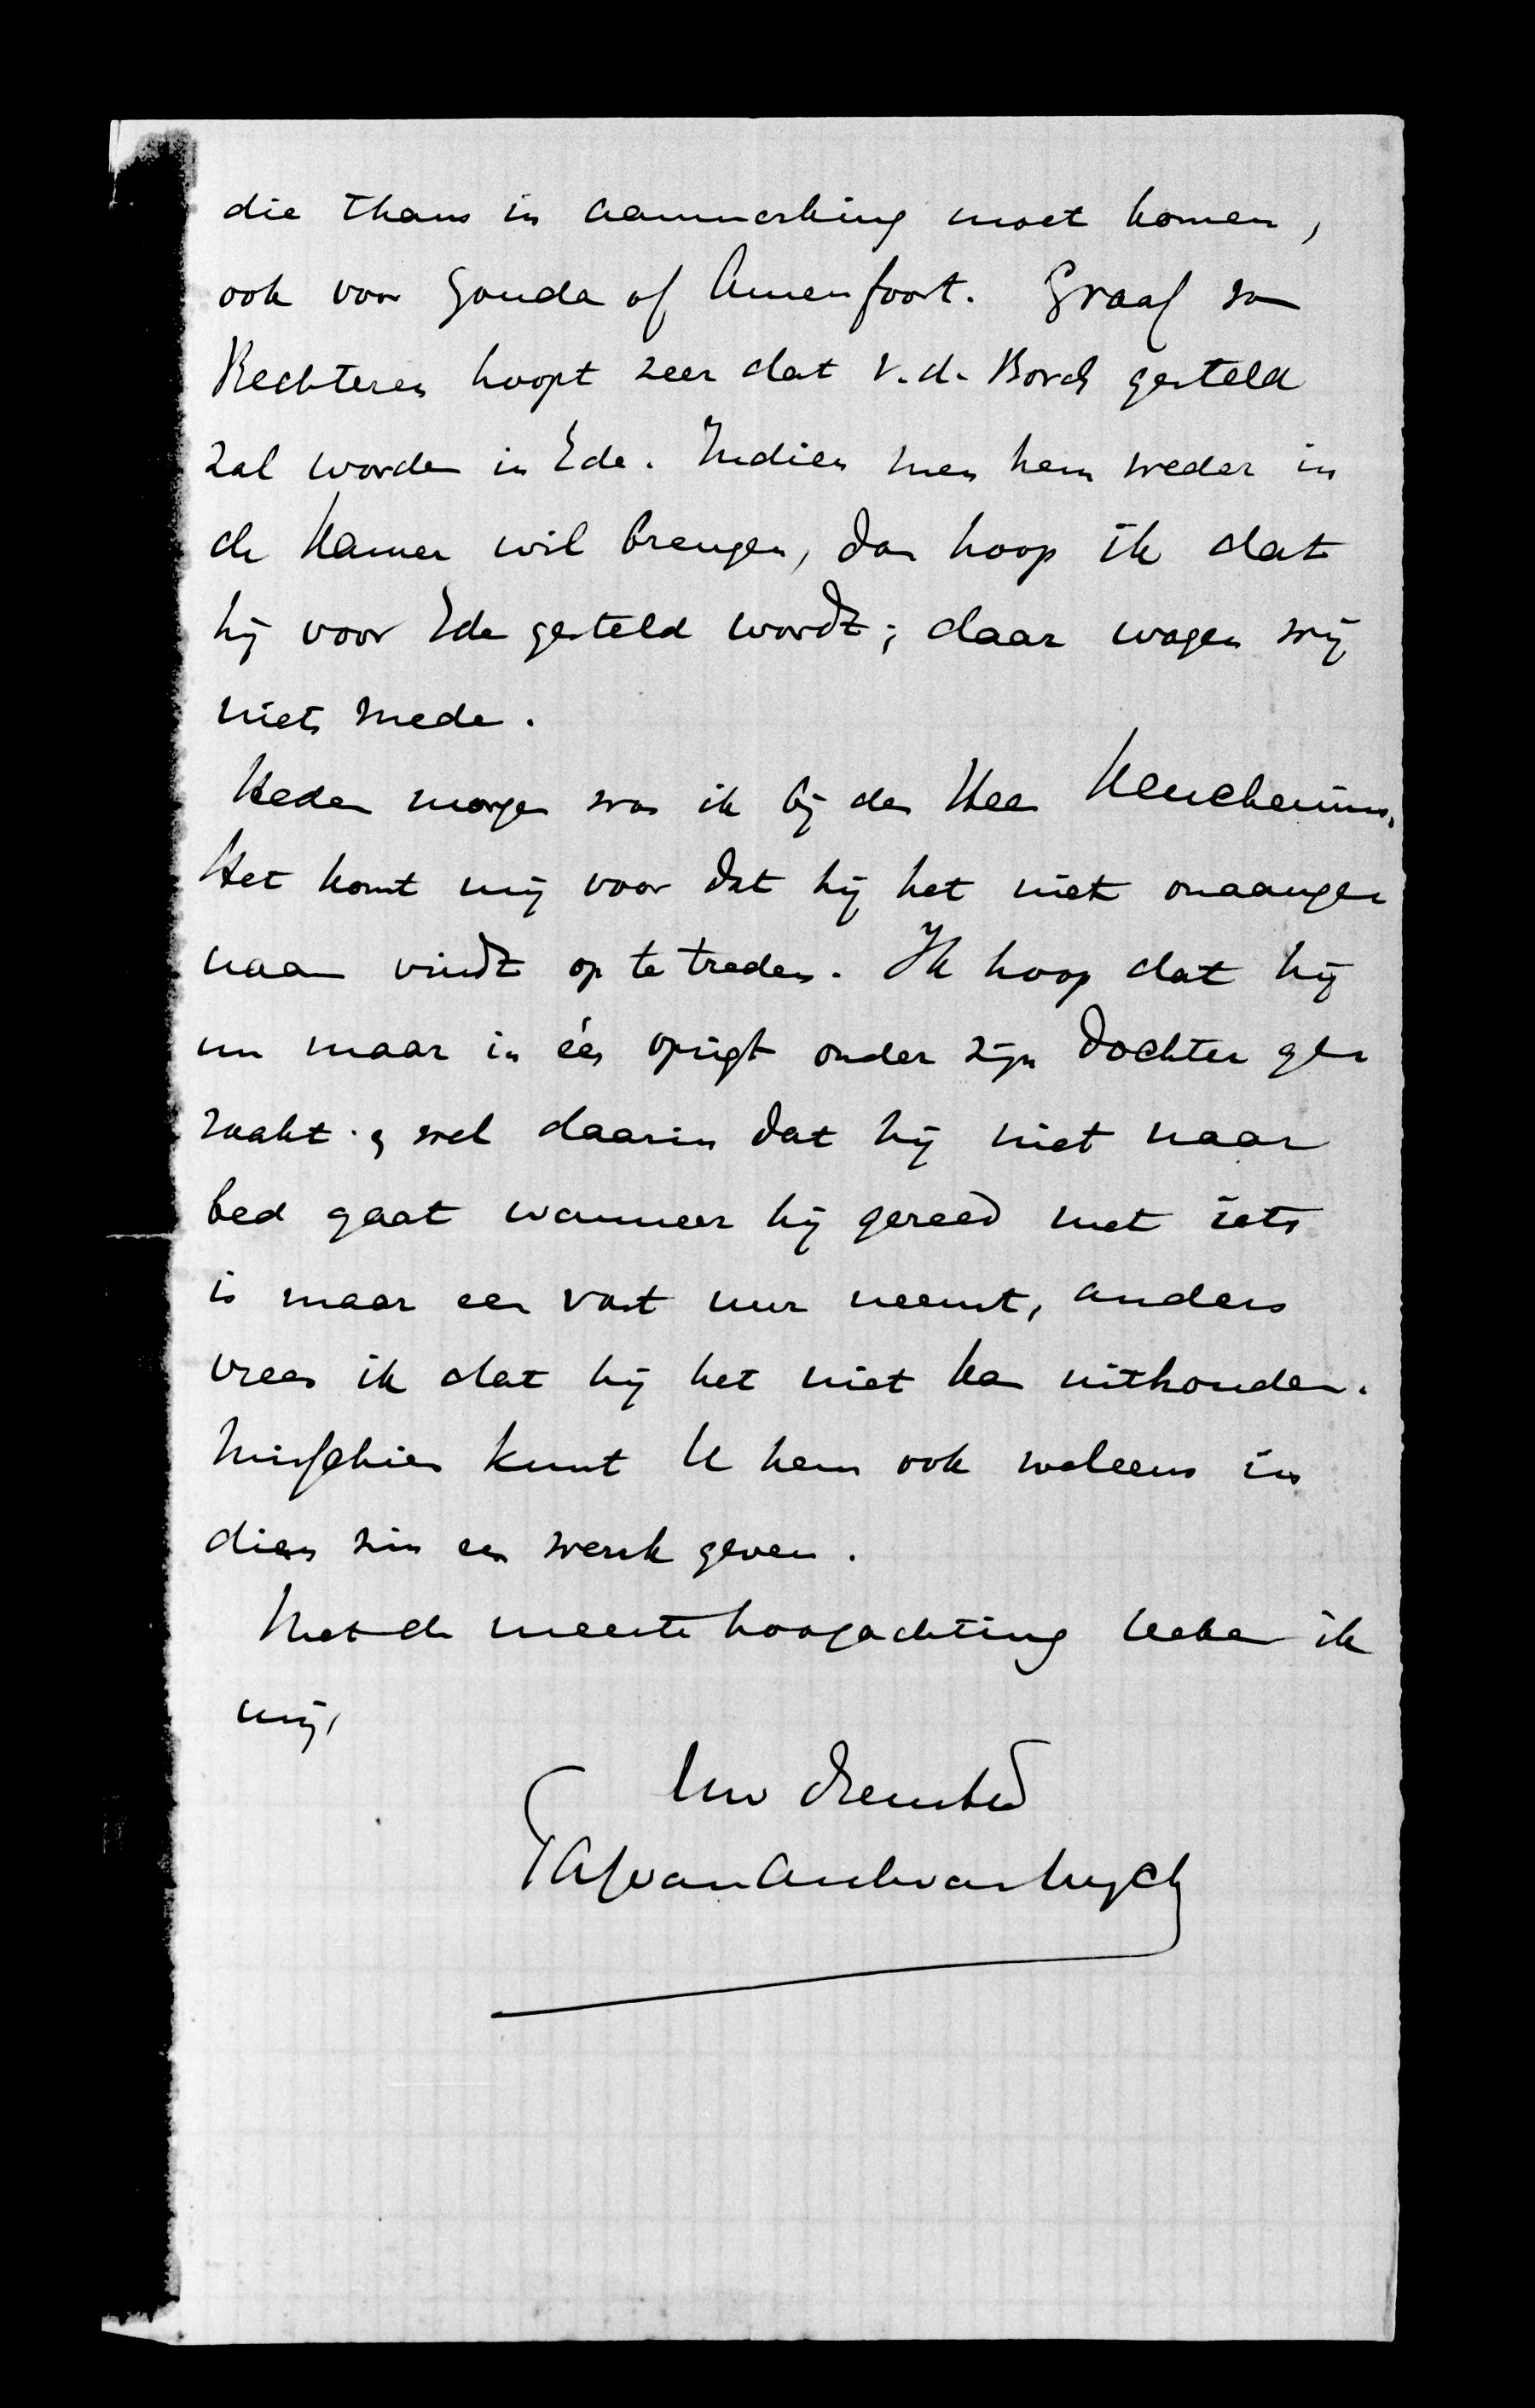 die thans in aanmerking moet komen,
ook voor Gouda of Amersfoort. Graaf van
Rechteren hoopt zeer dat v.d. Borch gesteld
zal worden in Ede. Indien men hem weder in
de Kamer wil brengen, dan hoop ik dat
hij voor Ede gesteld wordt; daar wagen wij
niets mede.
Heden morgen was ik bij den Heer Keuchenius.
Het komt mij voor dat hij het niet onaange
naam vindt op te treden. Ik hoop dat hij
nu maar in één opzigt onder zijn dochter ge
raakt & wel daarin dat hij niet naar
bed gaat wanneer hij gereed met iets
is maar een vast uur neemt, anders
vrees ik dat hij het niet kan uithouden.
Misschien kunt U hem ook weleens in
dien zin een wenk geven.
Met de meeste hoogachting teeken ik
mij,
Uw dienstw